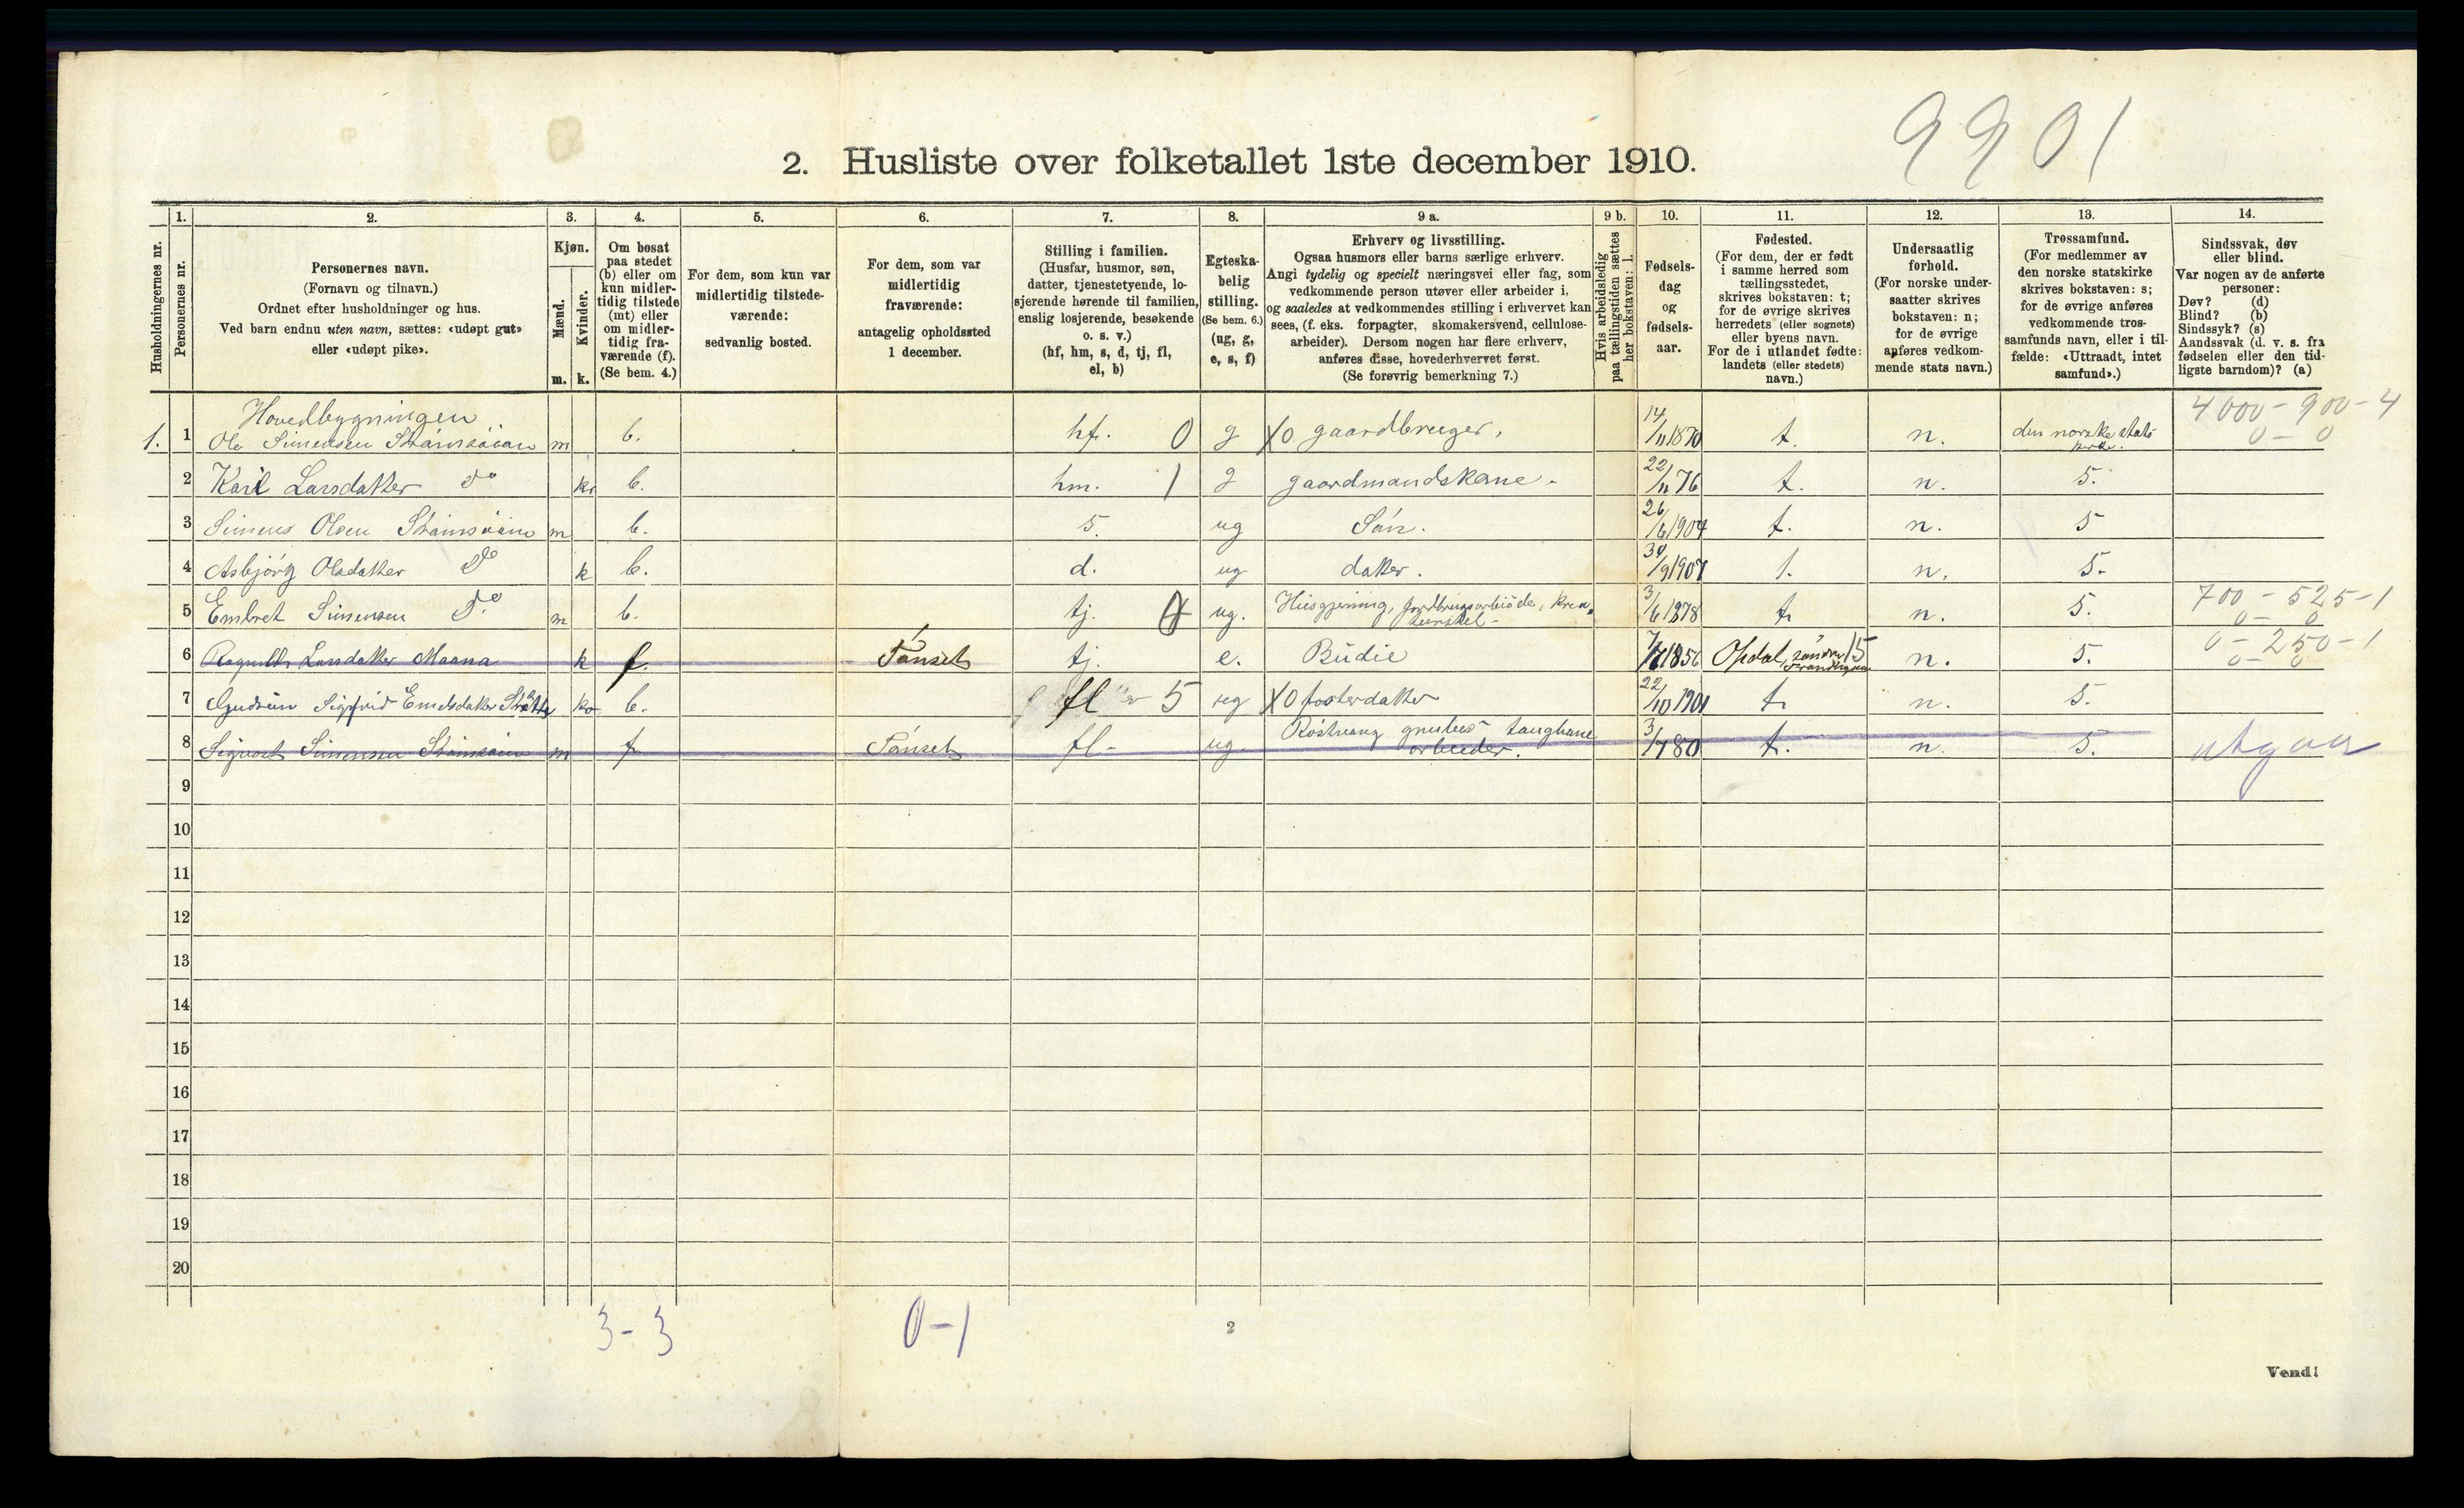 9901
2. Husliste over folketallet 1ste december 1910.
Husholdningernes nr.
1.
Personernes nr.
2.
Personernes navn.
(Fornavn og tilnavn.)
Ordnet efter husholdninger og hus.
Ved barn endnu uten navn, sættes: «udøpt gut»
eller «udøpt pike».
3.
Kjøn.
Mænd.
Kvinder.
m. k.
4.
Om bosat
paa stedet
(b) eller om
kun midler-
tidig tilstede
(mt) eller
om midler-
tidig fra-
værende (f).
(Se bem. 4.)
5.
For dem, som kun var
midlertidig tilstede-
værende:
sedvanlig bosted.
6.
For dem, som var
midlertidig
fraværende:
antagelig opholdssted
1 december.
7.
Stilling i familien.
(Husfar, husmor, søn,
datter, tjenestetyende, lo-
sjerende hørende til familien,
enslig losjerende, besøkende
o. s. v.)
(hf, hm, s, d, tj, fl,
el, b)
8.
Egteska-
belig
stilling.
(Se bem. 6.)
(ug, g,
e, s, f)
9 a.
Erhverv og livsstilling.
Ogsaa husmors eller barns særlige erhverv.
Angi tydelig og specielt næringsvei eller fag, som
vedkommende person utøver eller arbeider i,
og saaledes at vedkommendes stilling i erhvervet kan
sees, (f. eks. forpagter, skomakersvend, cellulose-
arbeider). Dersom nogen har flere erhverv,
anføres disse, hovederhvervet først.
(Se forøvrig bemerkning 7.)
9 b.
Hvis arbeidsledig
paa tællingstiden sættes
her bokstaven: l.
10.
Fødsels-
dag
og
fødsels-
aar.
11.
Fødested.
(For dem, der er født
i samme herred som
tællingsstedet,
skrives bokstaven: t;
for de øvrige skrives
herredets (eller sognets)
eller byens navn.
For de i utlandet fødte:
landets (eller stedets)
navn.)
12.
Undersaatlig
forhold.
(For norske under-
saatter skrives
bokstaven: n;
for de øvrige
anføres vedkom-
mende stats navn.)
13.
Trossamfund.
(For medlemmer av
den norske statskirke
skrives bokstaven: s;
for de øvrige anføres
vedkommende tros-
samfunds navn, eller i til-
fælde: «Uttraadt, intet
samfund».)
14.
Sindssvak, døv
eller blind.
Var nogen av de anførte
personer:
Døv? (d)
Blind? (b)
Sindssyk? (s)
Aandssvak (d. v. s. fra
fødselen eller den tid-
ligste barndom)? (a)
Hovedbygningen 4000-900-4
1. 1 Ole Simensen m b. hf. 0 g X0 gaardbruger, 14/11 1870 t. n. den norske stats kirke. 0-0
2 Kari Larsdatter do k b. hm. 1 g gaardmandskone. 22/11 76 t. n. s.
3 Simens Olsen m b. s. ug Sön. 26/6 1904 t. n. s
4 Asbjörg Olsdatter do k b. d. ug datter. 30/9 1907 t. n. s.
5 Embret Simensen do m b. tj. 4 ug. 3/6 1878 t n. s. 700-525-1
0-0
6 Ragnhild Larsdatter Maana k f. Tönset tj. e. Budie 1856 Opdal, 15 n. s. 0-250-1
0-0
7 Gudrun Sigfrid k b. fl 5 ug X0 fosterdatter 22/10 1901 t n. s.
8 Sigvart Simensen m f Tönset fl- ug Röstvang grubes taugbane
arbeider. 80 t. n. s. utgaar
9
10
11
12
13
14
15
16
17
18
19
20
3-3 0-1
2
Vend!